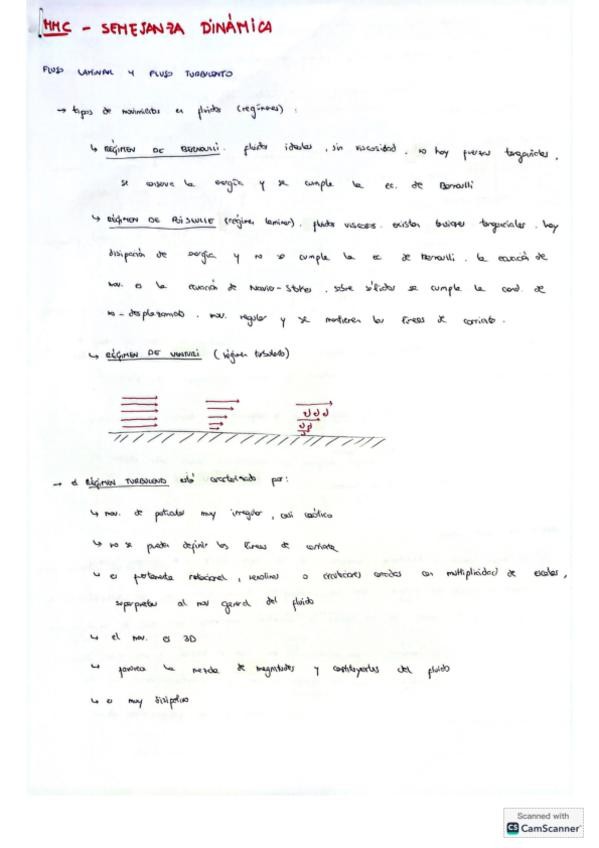 MMC - SEMEJANZA DINÁMICA
FLUJO LAMINAR Y FLUJO TURBULENTO
→ tipos de movimientos en fluidos (regímenes) :
↳ RÉGIMEN DE BERNOULLI. fluidos ideales, sin viscosidad. no hay fuerzas tangenciales.
se conserva la energía y se cumple la ec. de Bernoulli
↳ RÉGIMEN DE (régimen laminar). fluidos viscosos. existen tensiones tangenciales. hay
disipación de energía y no se cumple la ec de Bernoulli. la ecuación de
mov. es la ecuación de Navier-Stokes. sobre sólidos se cumple la cond. de
no-desplazamiento. mov. regular y se mantienen las líneas de corriente.
↳ RÉGIMEN DE VENTURI (régimen turbulento)
→ el RÉGIMEN TURBULENTO está caracterizado por:
↳ mov. de partículas muy irregular, casi caótico
↳ no se pueden definir las líneas de corriente
↳ es rotacional, o con multiplicidad de escalas,
superpuestas al mov general del fluido
↳ el mov. es 3D
↳ favorece la mezcla de magnitudes y del fluido
↳ es muy disipativo
Scanned with
CS CamScanner